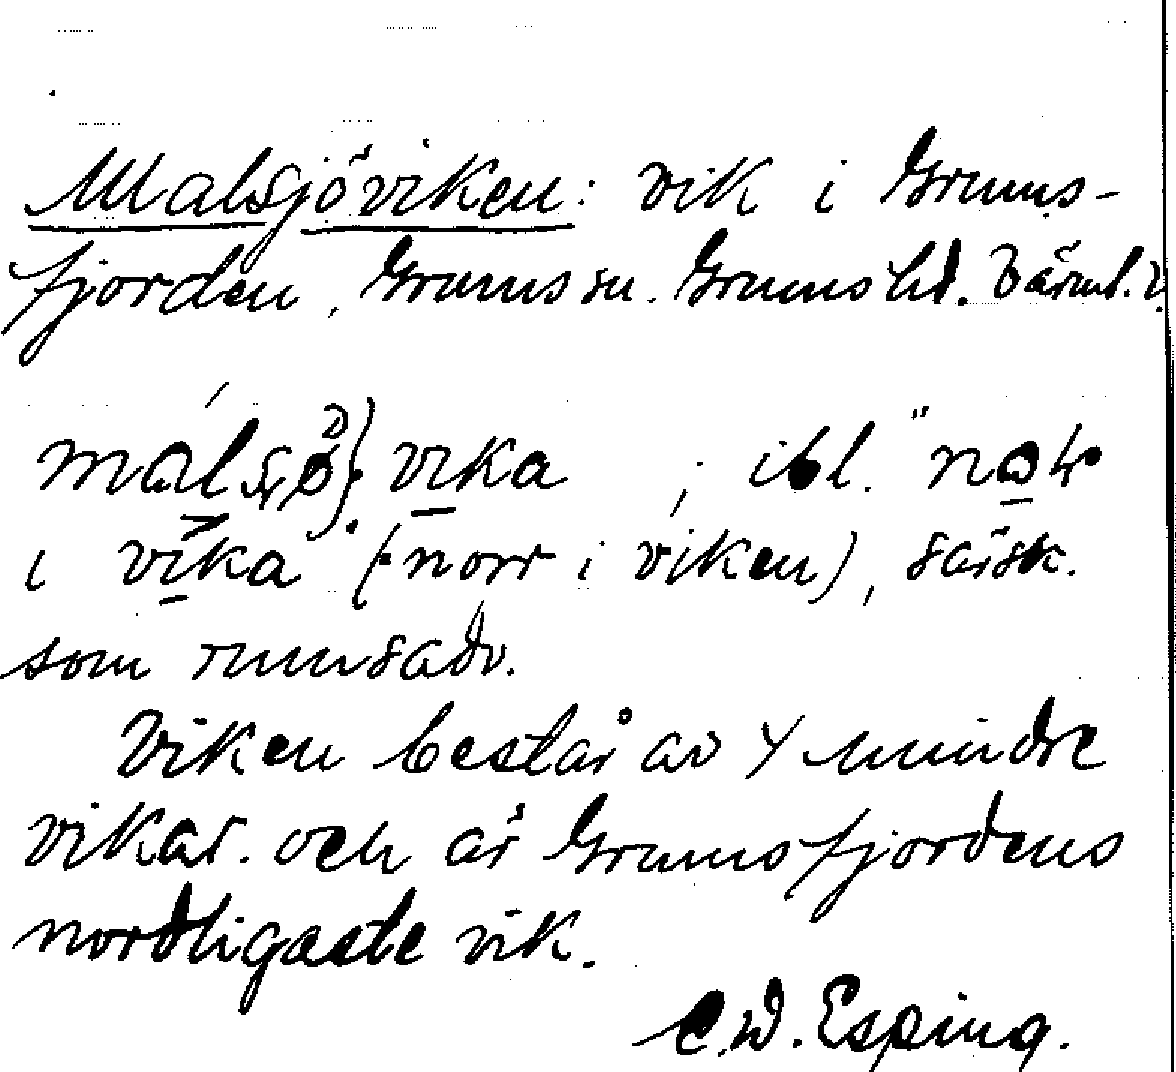 Malsjöviken: vik i Grums-
fjorden, Grums sn. Grums hd. Värml.
vika ; ibl. "
i vika" (= norr i viken), särsk.
som rumsadv.
Viken består av 4 mindre
vikar. och är Grumsfjordens
nordligaste vik.
C.W. Esping.